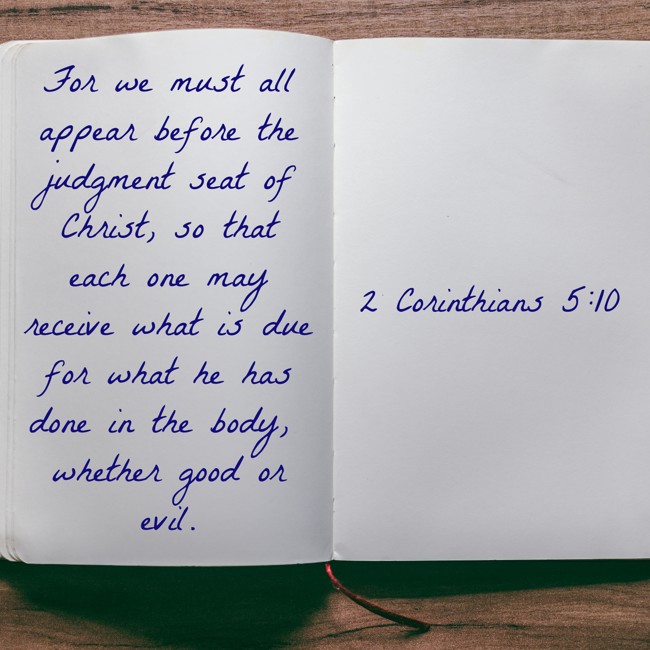 For we must all
appear before the
judgment seat of
Christ, so that
each one may
receive what is due
for what he has
done in the body,
whether good or
evil.
2 Corinthians 5:10